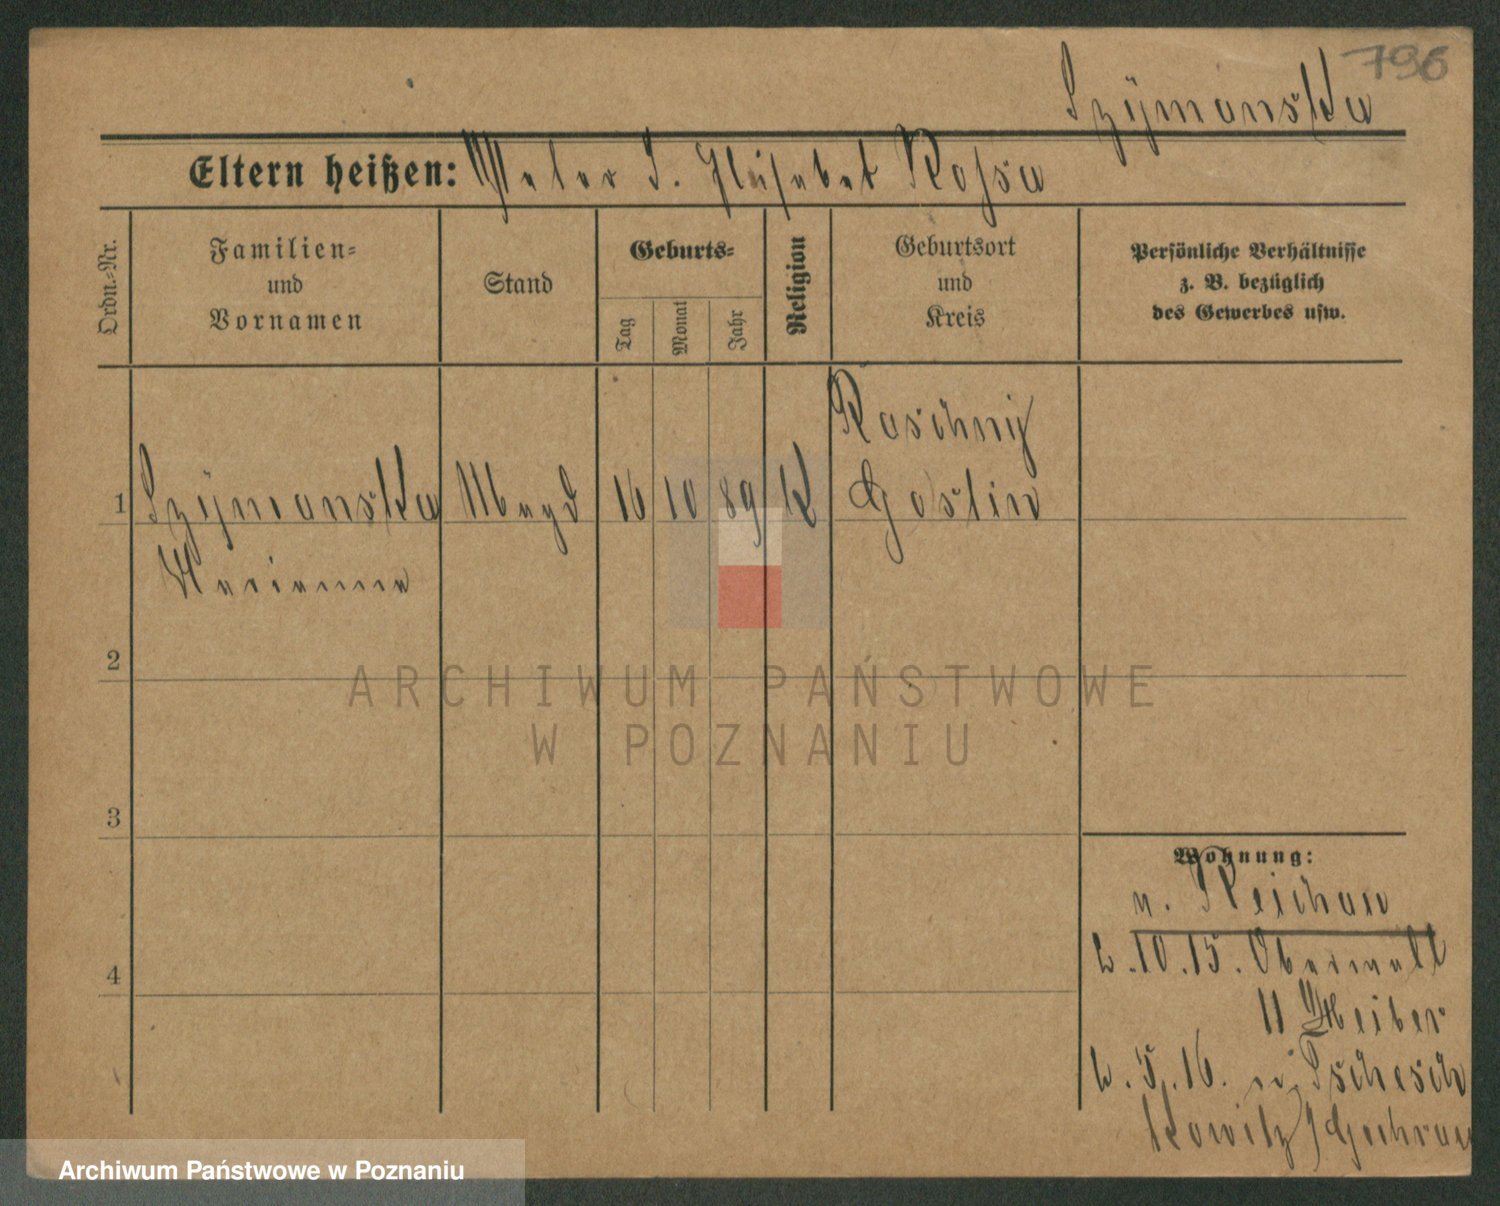 796
Szÿmanska
Eltern heißen: Peter u. Elisabet Rossa
Ordn.-Nr.
Familien-
und
Vornamen
Stand
Geburts-
Tag
Monat
Jahr
Religion
Geburtsort
und
Kreis
Persönliche Verhältnisse
z. B. bezüglich
des Gewerbes usw.
Roschnÿ
1 Szÿmanska Magd 16 10 89 K Gostin
Marianna
2
3
4
Wohnung:
n. Reichau
10.15. Oberwall
11 Weiber
5.16. Tschesch
kowitz
ARCHIWUM PAŃSTWOWE
W POZNANIU
Archiwum Państwowe w Poznaniu